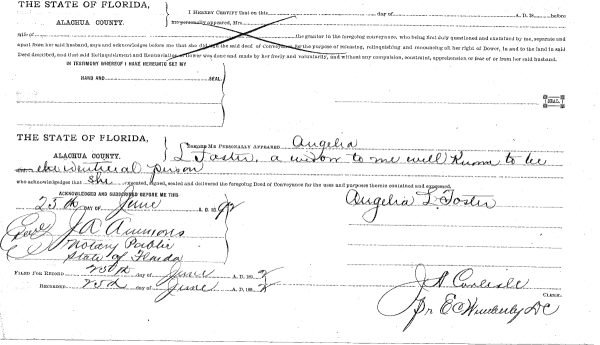 THE STATE OF FLORIDA,
ALACHUA COUNTY.
I HEREBY CERTIFY that on this day of A. D. 18 before
me personally appeared, Mrs.
wife of the grantor in the foregoing conveyance, who being first duly questioned and examined by me, separate and
apart from her said husband, says and acknowledges before me that she did sign the said deed of Conveyance for the purpose of releasing, relinquishing and renouncing all her right of Dower, in and to the land in said
Deed described, and that said Relinquishment and Renunciation of Dower was done and made by her freely and voluntarily, and without any compulsion, constraint, apprehension or fear of or from her said husband.
IN TESTIMONY WHEREOF I HAVE HEREUNTO SET MY
HAND AND SEAL.
SEAL.
THE STATE OF FLORIDA,
ALACHUA COUNTY.
BEFORE ME PERSONALLY APPEARED Angelia
L Foster, a widow to me well Known to be
the identical person
who acknowledges that she executed, signed, sealed and delivered the foregoing Deed of Conveyance for the uses and purposes therein contained and expressed.
ACKNOWLEDGED AND SUBSCRIBED BEFORE ME THIS
25th DAY OF June A. D. 1892
Angelia L. Foster
J. A. Ammons
Notary Public
State of Florida
FILED FOR RECORD 25th day of June A. D. 1892
RECORDED 25th day of June A. D. 1892
J. A. Carlisle
CLERK.
pr E C Wimberly DC